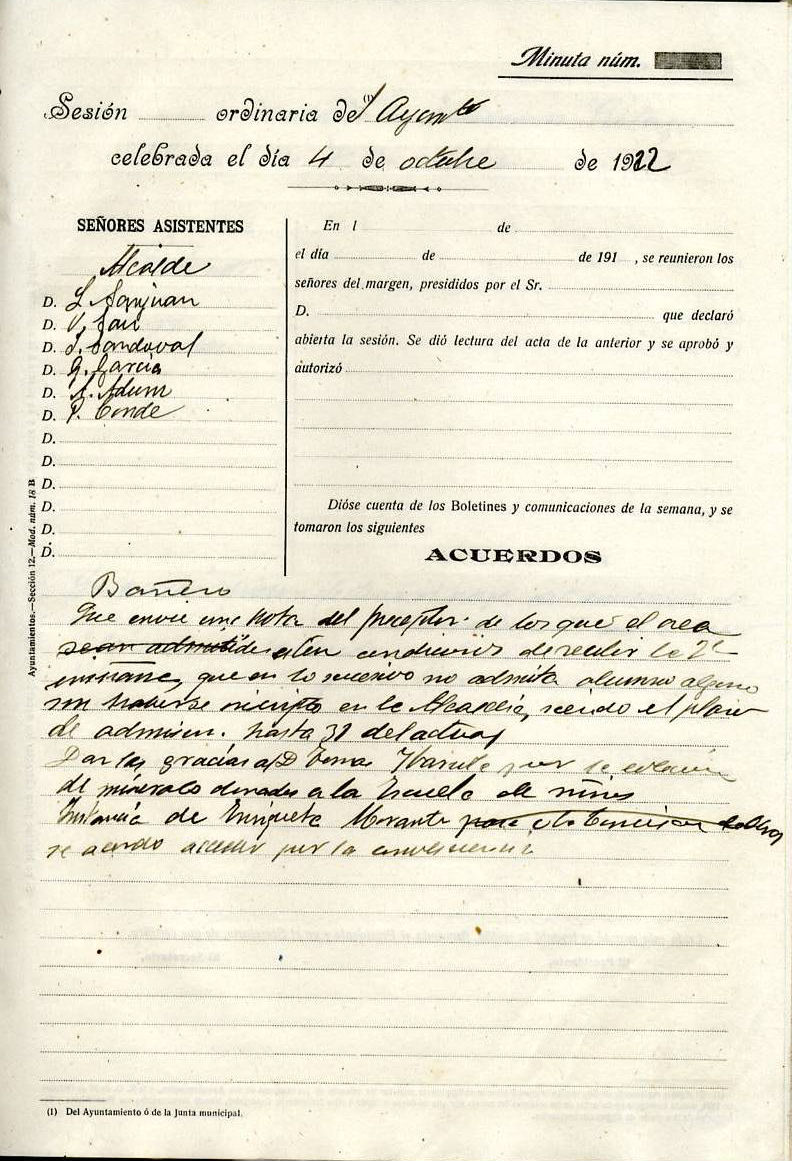 Minuta núm.
Sesión ordinaria del (1) Ayunto
celebrada el día 4 de octubre de 1922
SEÑORES ASISTENTES
Alcalde
D. L. Sanjuan
D. V. Saiz
D. J. Sandoval
D. G. Garcia
D. A. Adum
D. P. Conde
D.
D.
D.
D.
D.
D.
En l de
el día de de 191 , se reunieron los
señores del margen, presididos por el Sr.
D. que declaró
abierta la sesión. Se dió lectura del acta de la anterior y se aprobó y
autorizó
Dióse cuenta de los Boletines y comunicaciones de la semana, y se
tomaron los siguientes
ACUERDOS
Bañero
Que envie una nota del preceptor de los que el crea
sean admitidos esten condiciones de recibir la 2ª
enseñanz, que en lo sucesivo no admita alumno alguno
sin haberse inscripto en la Alcaldia, siendo el plazo
de admision hasta 31 del actual
Dar las gracias a D Tomas por la colección
de minerales donados a la Escuela de niños
Instancia de Enriqueta Morante para
se acordo acceder por la
Ayuntamientos.—Sección 12.—Mod. núm. 18 B
(1) Del Ayuntamiento ó de la Junta municipal.